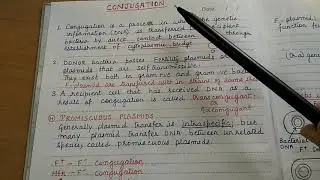 CONJUGATION
Date
1. Conjugation is a process in which the genetic
information (DNA) is transferred
bacteria by direct contact between through
establishment of cytoplasmic bridge
2. Donor bacteria posses Fertility plasmids or
plasmids that are self transmissible.
They exist both in gram +ve and gram -ve
F-plasmids are transferred with in strains of same
3. A recipient cell that has received DNA as a
result of conjugation is called transconjugant
or
Exconjugant
PROMISCUOUS PLASMIDS
Generally plasmid transfer is intraspecific but
many plasmid transfer DNA between unrelated
species called promiscuous plasmids.
F+ - F- conjugation
Hfr - F- conjugation
F+ plasmid
transfer
form
Bacterial
DNA F+ D